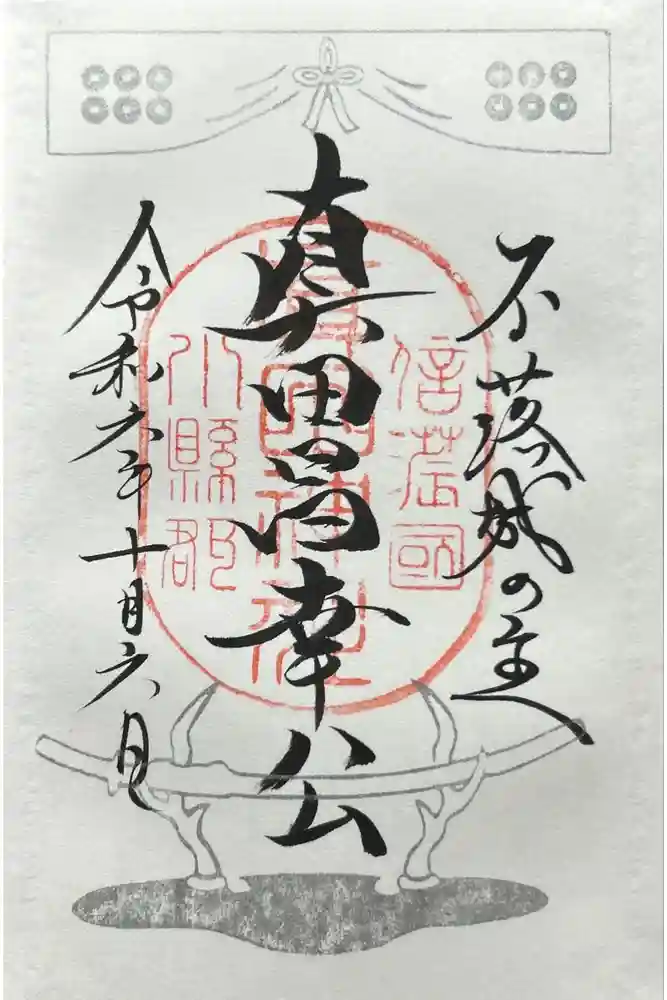 不落城の
真田昌幸公
令和六年十月六日
信濃國
眞田神社
小縣郡